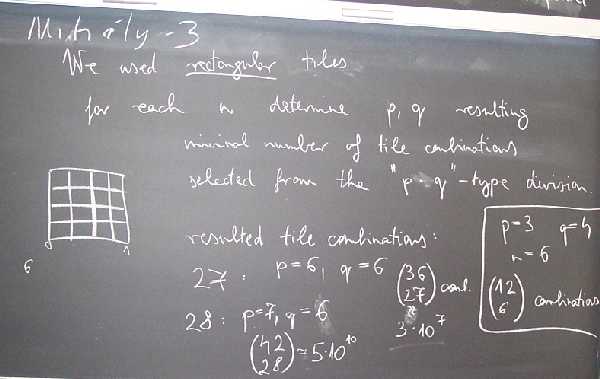 Mihály-3
We used rectangular tiles
for each n determine p, q resulting
minimal number of tile combinations
selected from the "p · q"-type division.
resulted tile combinations:
27: p=6, q=6 (36 27) comb.
≈
3·10^7
28: p=7, q=6
(42 28) ≈ 5·10^10
p=3 q=4
n=6
(12 6) combinations
6